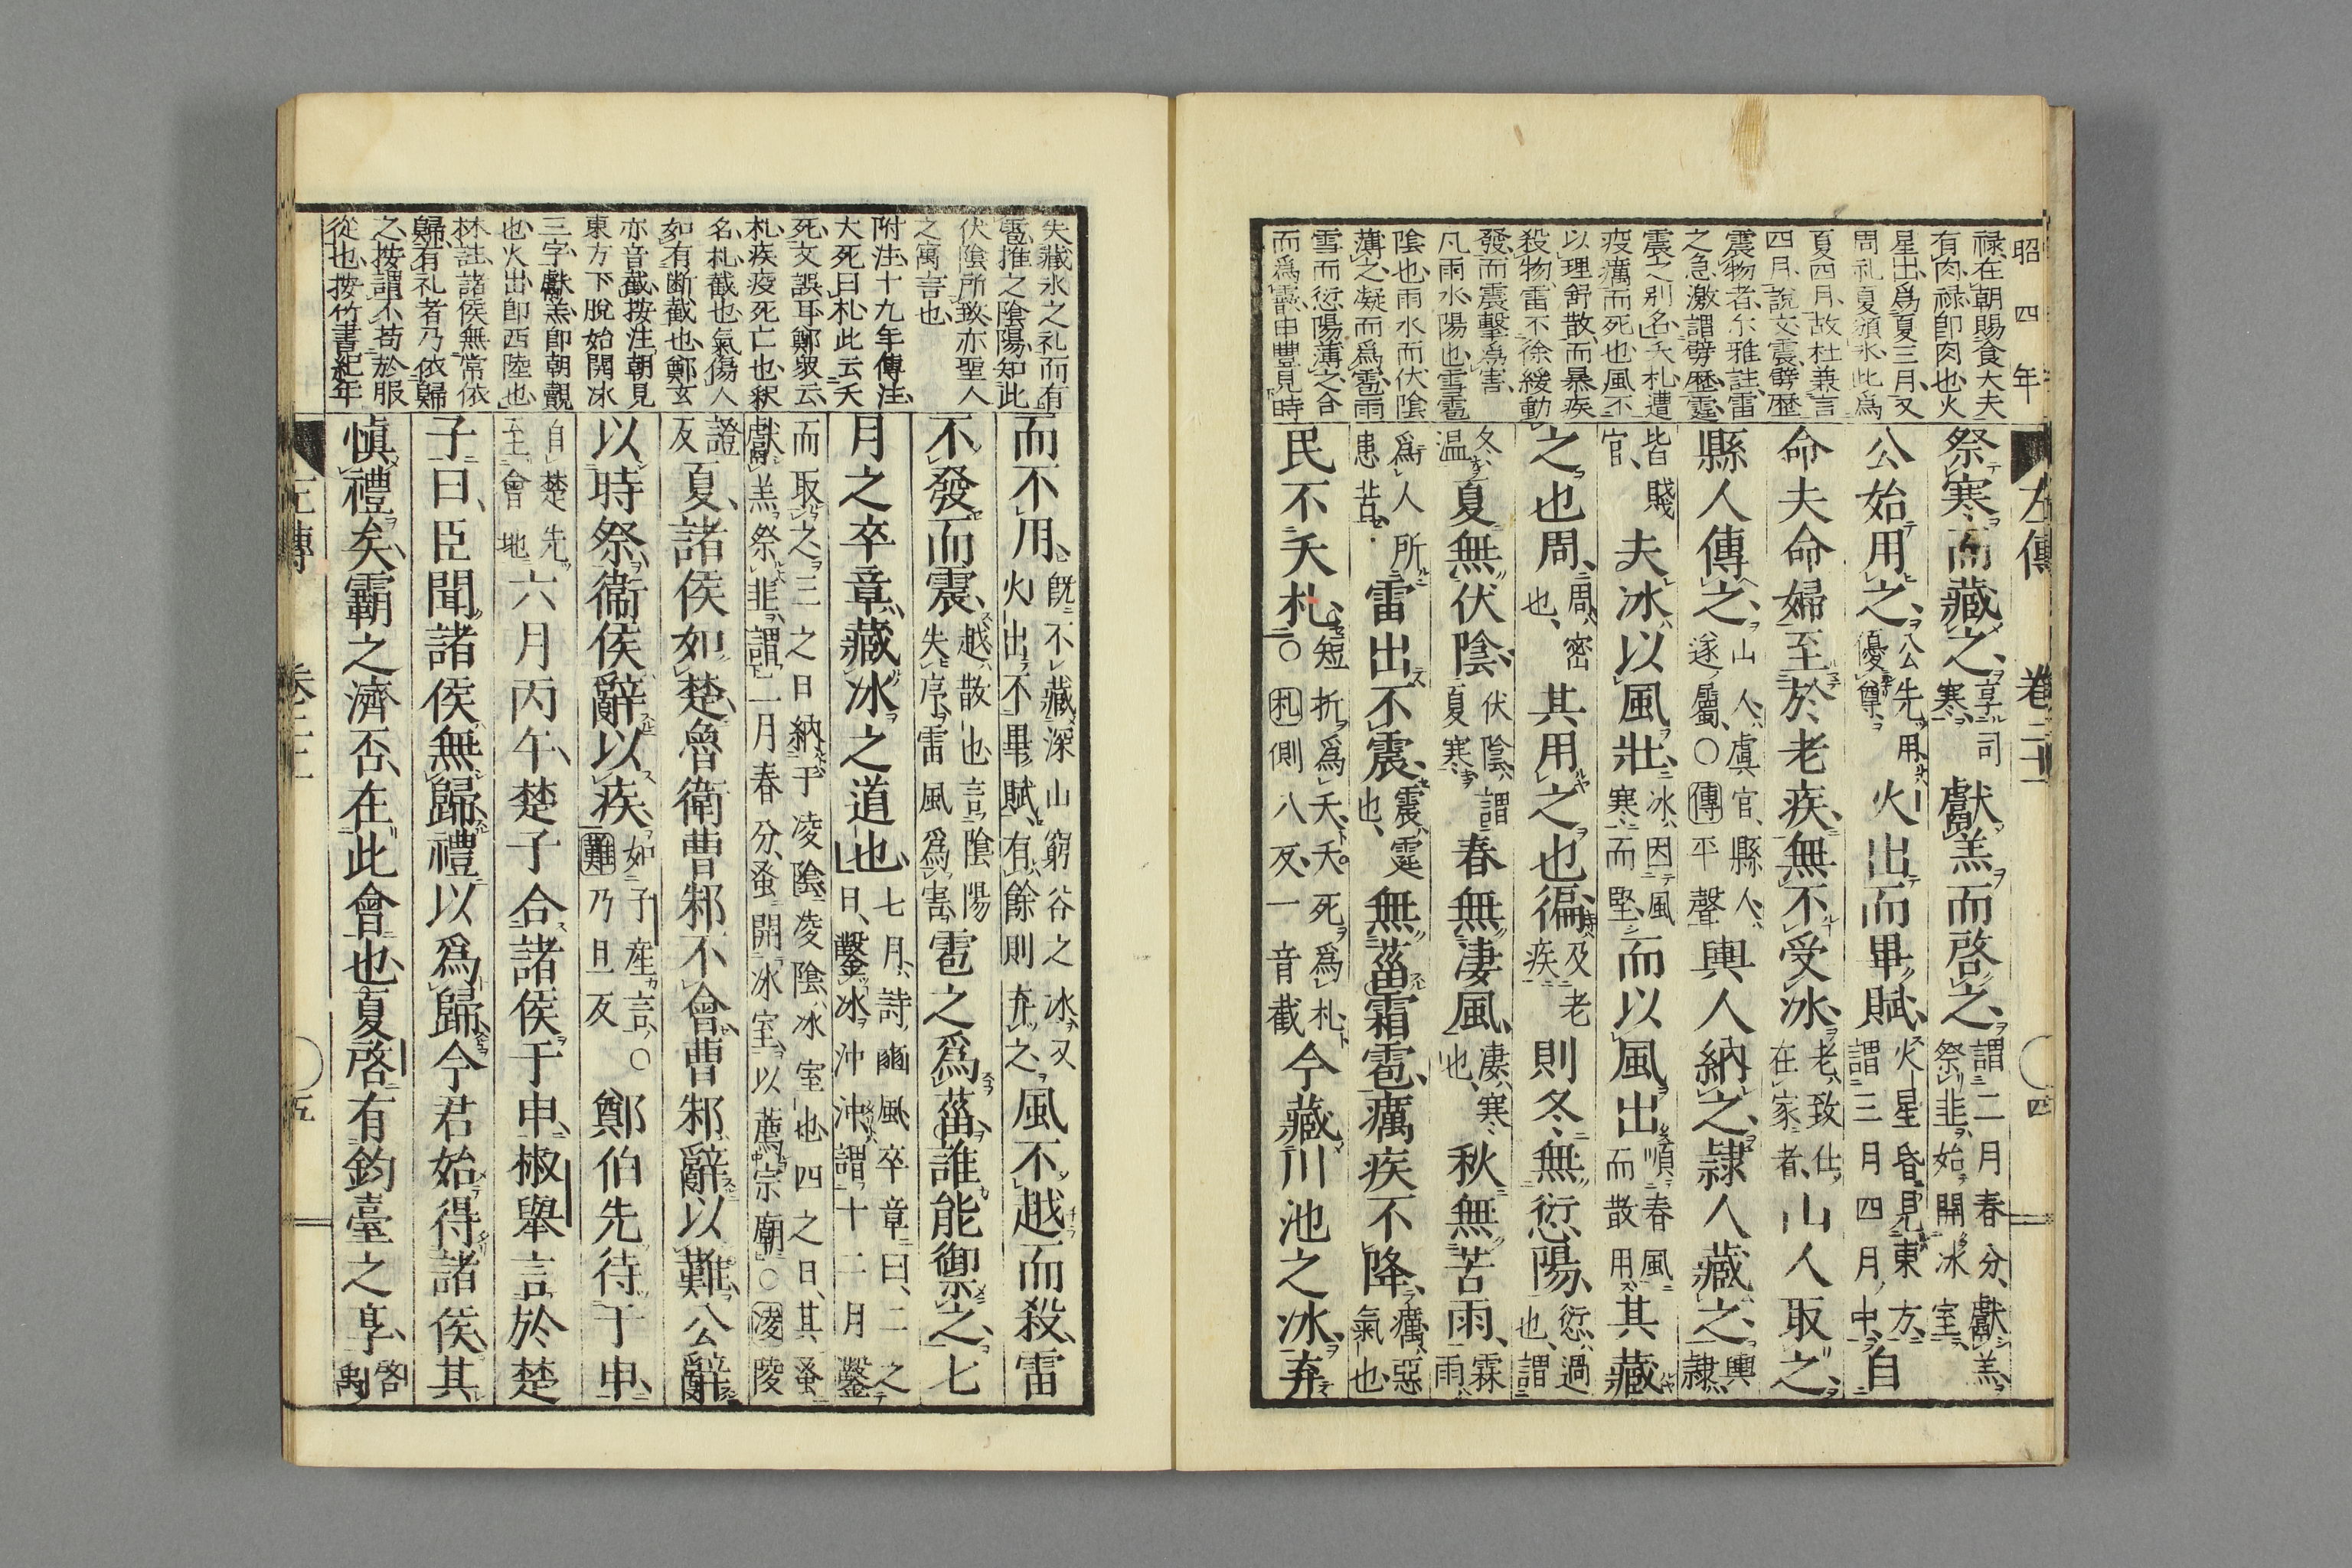 昭四年
左傳 卷二十一 四
禄在朝賜食大夫
有肉禄即肉也火
星出爲夏三月又
周礼夏頒氷此爲
夏四月故杜兼言
四月説文震劈歴
震物者尓雅註雷
之急激謂劈歴霆
震之别名夭札遭
疫癘而死也風不
以理舒散而暴疾
殺物雷不徐緩動
發而震擊爲害
凡雨水陽也雪雹
陰也雨水而伏陰
薄之凝而爲雹雨
雪而愆陽薄之合
而爲霰申豐見時
祭寒而藏之享司寒獻羔而啓之謂二月春分獻羔祭韭始開氷室
公始用之公先用優尊火出而畢賦火星昏見東方謂三月四月中自
命夫命婦至於老疾無不受冰老致仕在家者山人取之
縣人傳之山人虞官縣人遂屬○傳平聲輿人納之隷人藏之輿隷
皆賤官夫冰以風壯冰因風寒而堅而以風出順春風而散用其藏
之也周周密也其用之也徧及老疾則冬無愆陽愆過也謂
冬温夏無伏陰伏陰謂夏寒春無凄風凄寒也秋無苦雨霖雨
爲人所患苦雷出不震震霆也無菑霜雹癘疾不降癘惡氣也
民不夭札短折爲夭夭死爲札○札側八反一音截今藏川池之冰弃
失藏氷之礼而有
雹推之陰陽知此
伏陰所致亦聖人
之寓言也
附注十九年傳注
大死曰札此云夭
死文誤耳鄭衆云
札疾疫死亡也釈
名札截也氣傷人
如有断截也鄭玄
亦音截按注朝見
東方下脫始開冰
三字獻羔即朝覿
也火出即西陸也
林註諸侯無常依
歸有礼者乃依歸
之按謂不苟於服
從也按竹書紀年
而不用既不藏深山窮谷之冰又火出不畢賦有餘則弃之風不越而殺雷
不發而震越散也言陰陽失序雷風爲害雹之爲菑誰能禦之七
月之卒章藏冰之道也七月詩豳風卒章曰二之日鑿冰沖沖謂十二月鑿
而取之三之日納于凌陰凌陰冰室也四之日其蚤獻羔祭韭謂二月春分蚤開冰室以薦宗廟○凌陵
證反夏諸侯如楚魯衛曹邾不會曹邾辭以難公辭
以時祭衞侯辭以疾如子産言○難乃旦反鄭伯先待于申
自楚先至會地六月丙午楚子合諸侯于申椒舉言於楚
子曰臣聞諸侯無歸禮以爲歸今君始得諸侯其
愼禮矣霸之濟否在此會也夏啓有鈞臺之享啓禹
左傳 卷二十一 五